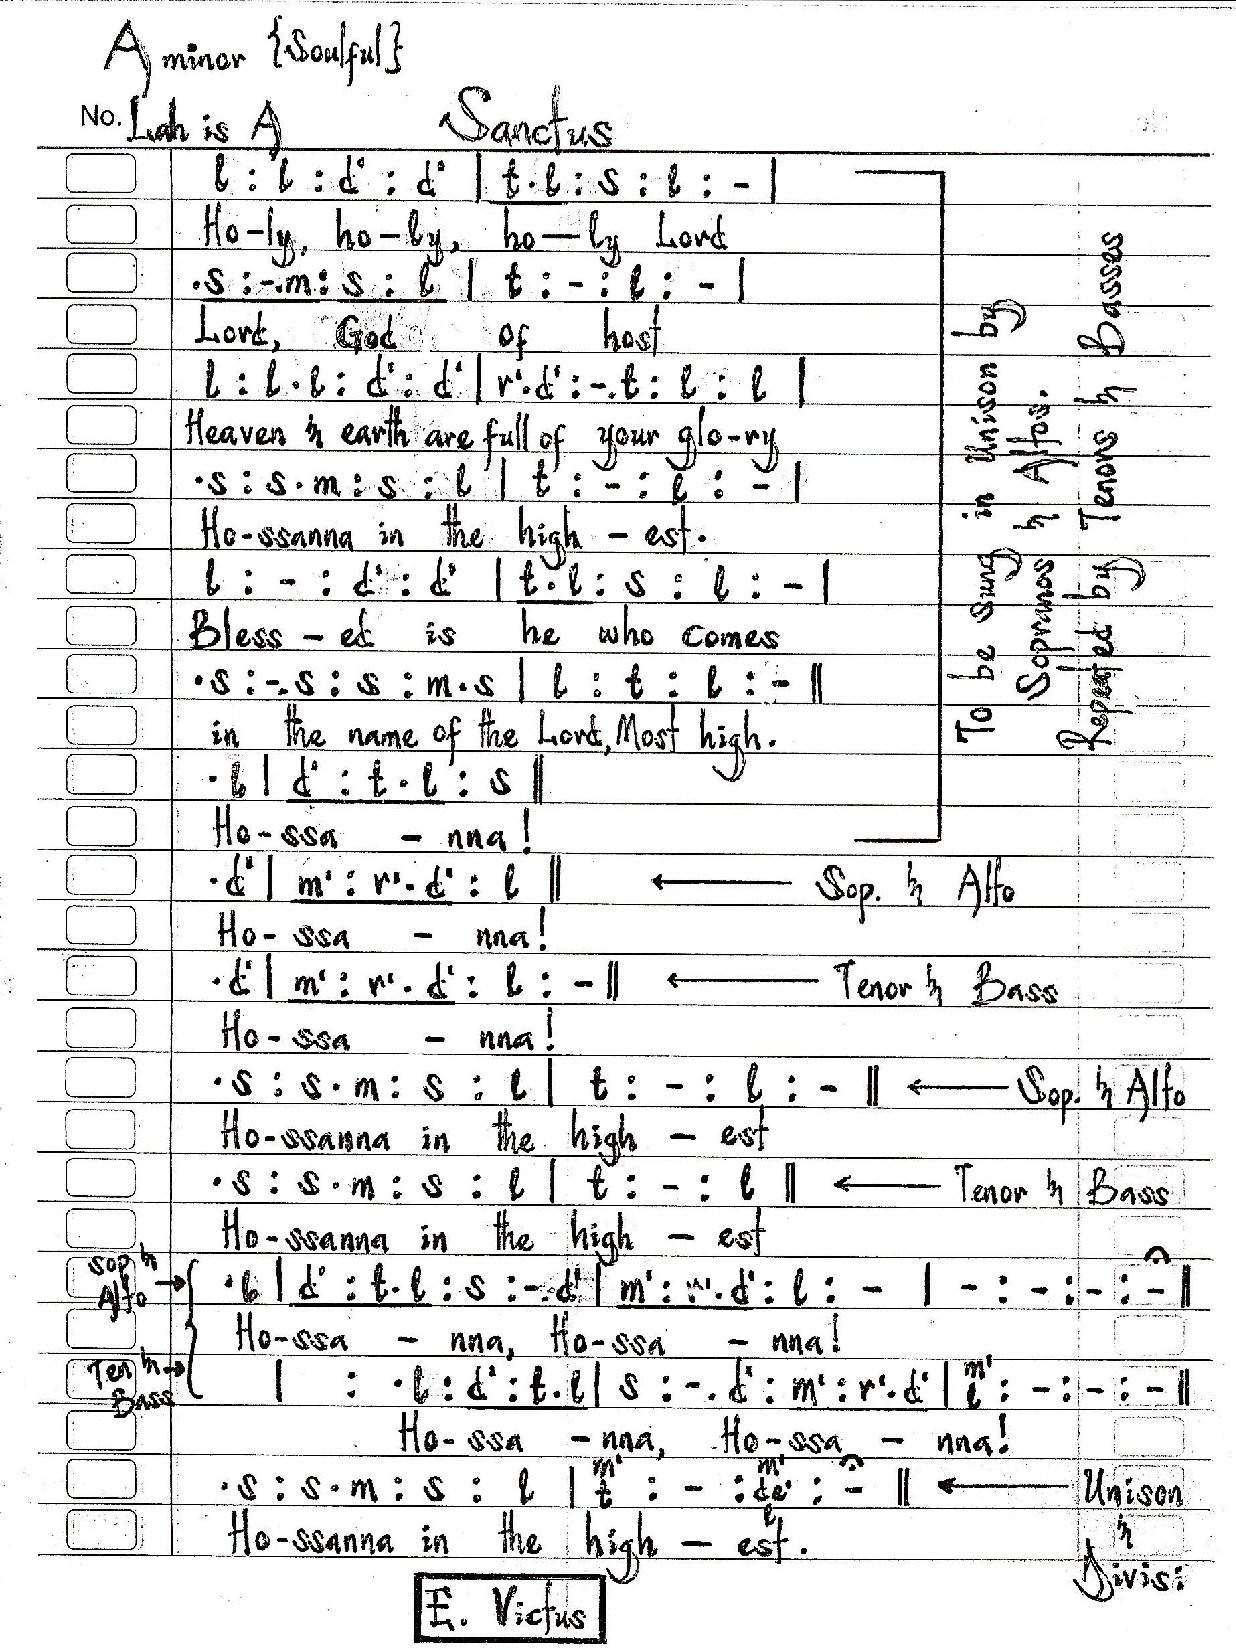 A minor {Soulful}
No. Lah is A Sanctus
l : l : d' : d' | t.l : s : l : - |
Ho-ly, ho-ly, ho-ly Lord
.s :-.m: s : l | t : - : l : - |
Lord, God of host
l : l.l : d' : d' | r'.d' :-.t : l : l |
Heaven & earth are full of your glo-ry
.s : s.m : s : l | t : - : l : - |
Ho-ssanna in the high - est.
l : - : d' : d' | t.l : s : l : - |
Bless - ed is he who comes
.s :-.s : s : m.s | l : t : l : - ||
in the name of the Lord, Most high.
.l | d' : t.l : s ||
Ho-ssa - nna!
To be sung in Unison by
Sopranos & Altos.
Repeated by Tenors & Basses
.d' | m' : r'.d' : l || ← Sop. & Alto
Ho-ssa - nna!
.d' | m' : r'.d' : l : - || ← Tenor & Bass
Ho-ssa - nna!
.s : s.m : s : l | t : - : l : - || ← Sop. & Alto
Ho-ssanna in the high - est
.s : s.m : s : l | t : - : l || ← Tenor & Bass
Ho-ssanna in the high - est
Sop & Alto → .l | d' : t.l : s :-.d' | m' : r'.d' : l : - | - : - : - : - ||
Ho-ssa - nna, Ho-ssa - nna!
Ten & Bass → | : .l : d' : t.l | s :-.d' : m' : r'.d' | m' l : - : - : - ||
Ho-ssa - nna, Ho-ssa - nna!
.s : s.m : s : l | m' t : - : m' de' l : - || ← Unison & Divisi
Ho-ssanna in the high - est.
E. Victus